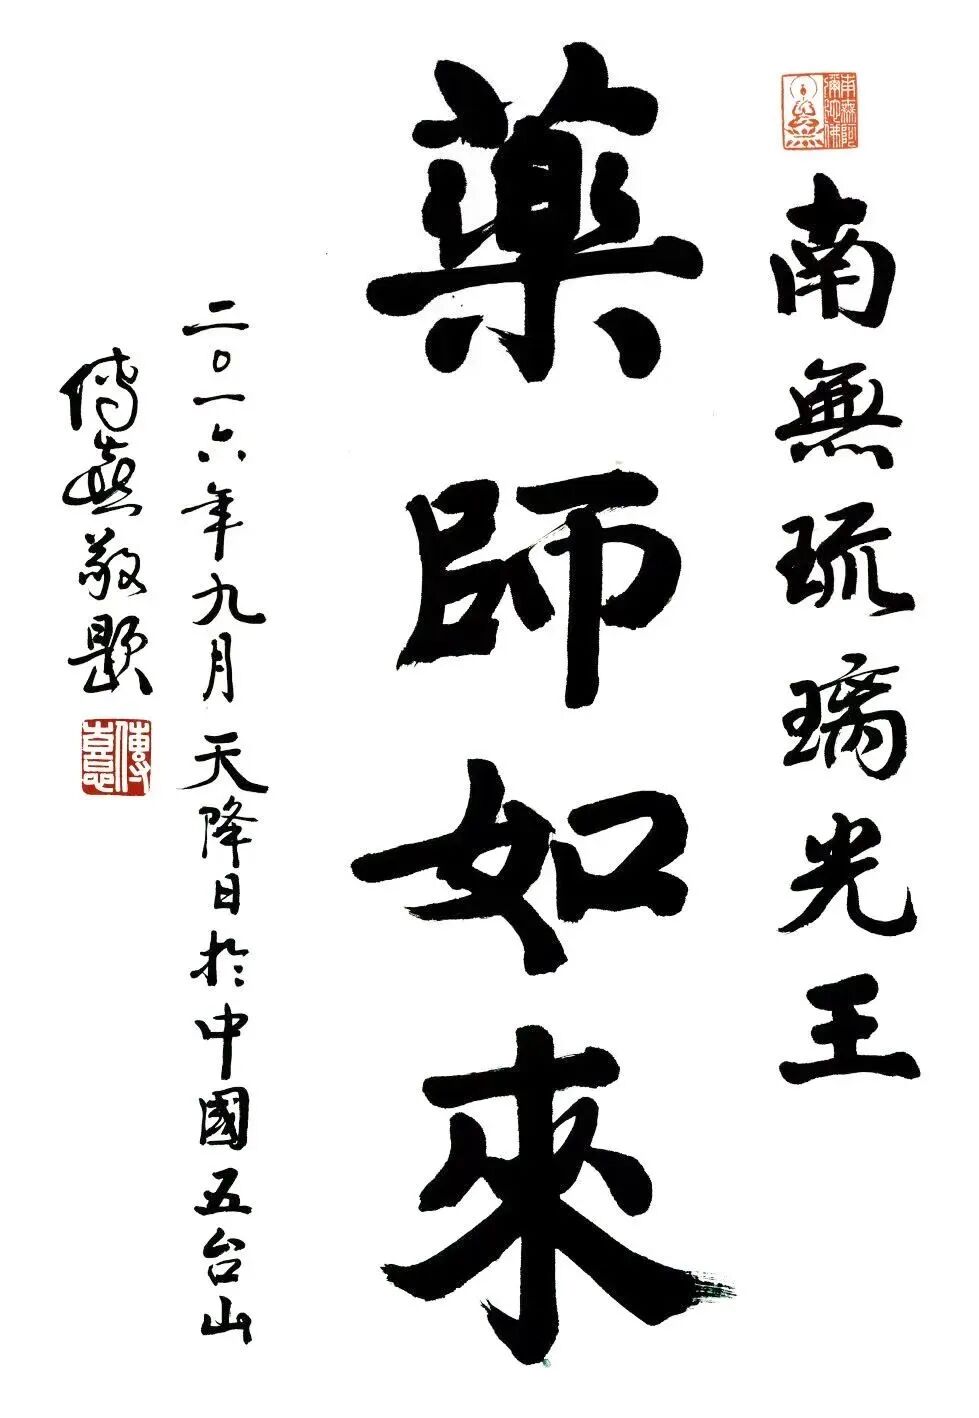 南無阿彌陀佛
南無琉璃光王
藥師如來
二〇一六年九月 天降日於中國五台山
傳憙敬題
傳憙